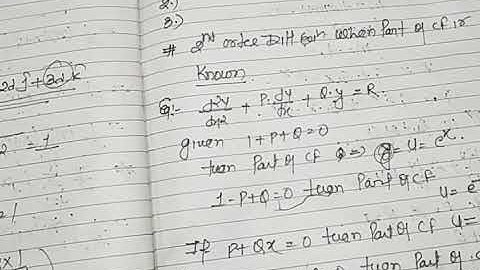 2.)
3.)
# 2nd order Diff Eqn when Part of CF is
Known.
Q:- d²y/dx² + P.dy/dx + Q.y = R.
given 1+P+Q=0
tuen Part of CF => y = u = e^x.
1-P+Q=0 tuen Part of CF
u = e^-
If P+Qx = 0 tuen Part of CF u =
tuen Part of CF
2dj + 3dk
2 = 1